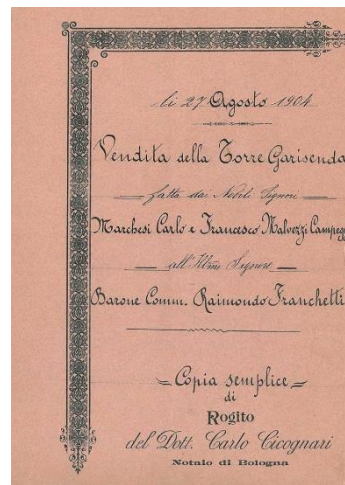 li 27 Agosto 1904
Vendita della Torre Garisenda
fatta dai Nobili Signori
Marchesi Carlo e Francesco Malvezzi Campeggi
all'Illmo Signore
Barone Comm. Raimondo Franchetti
Copia semplice
di
Rogito
del Dott. Carlo Cicognari
Notaio di Bologna